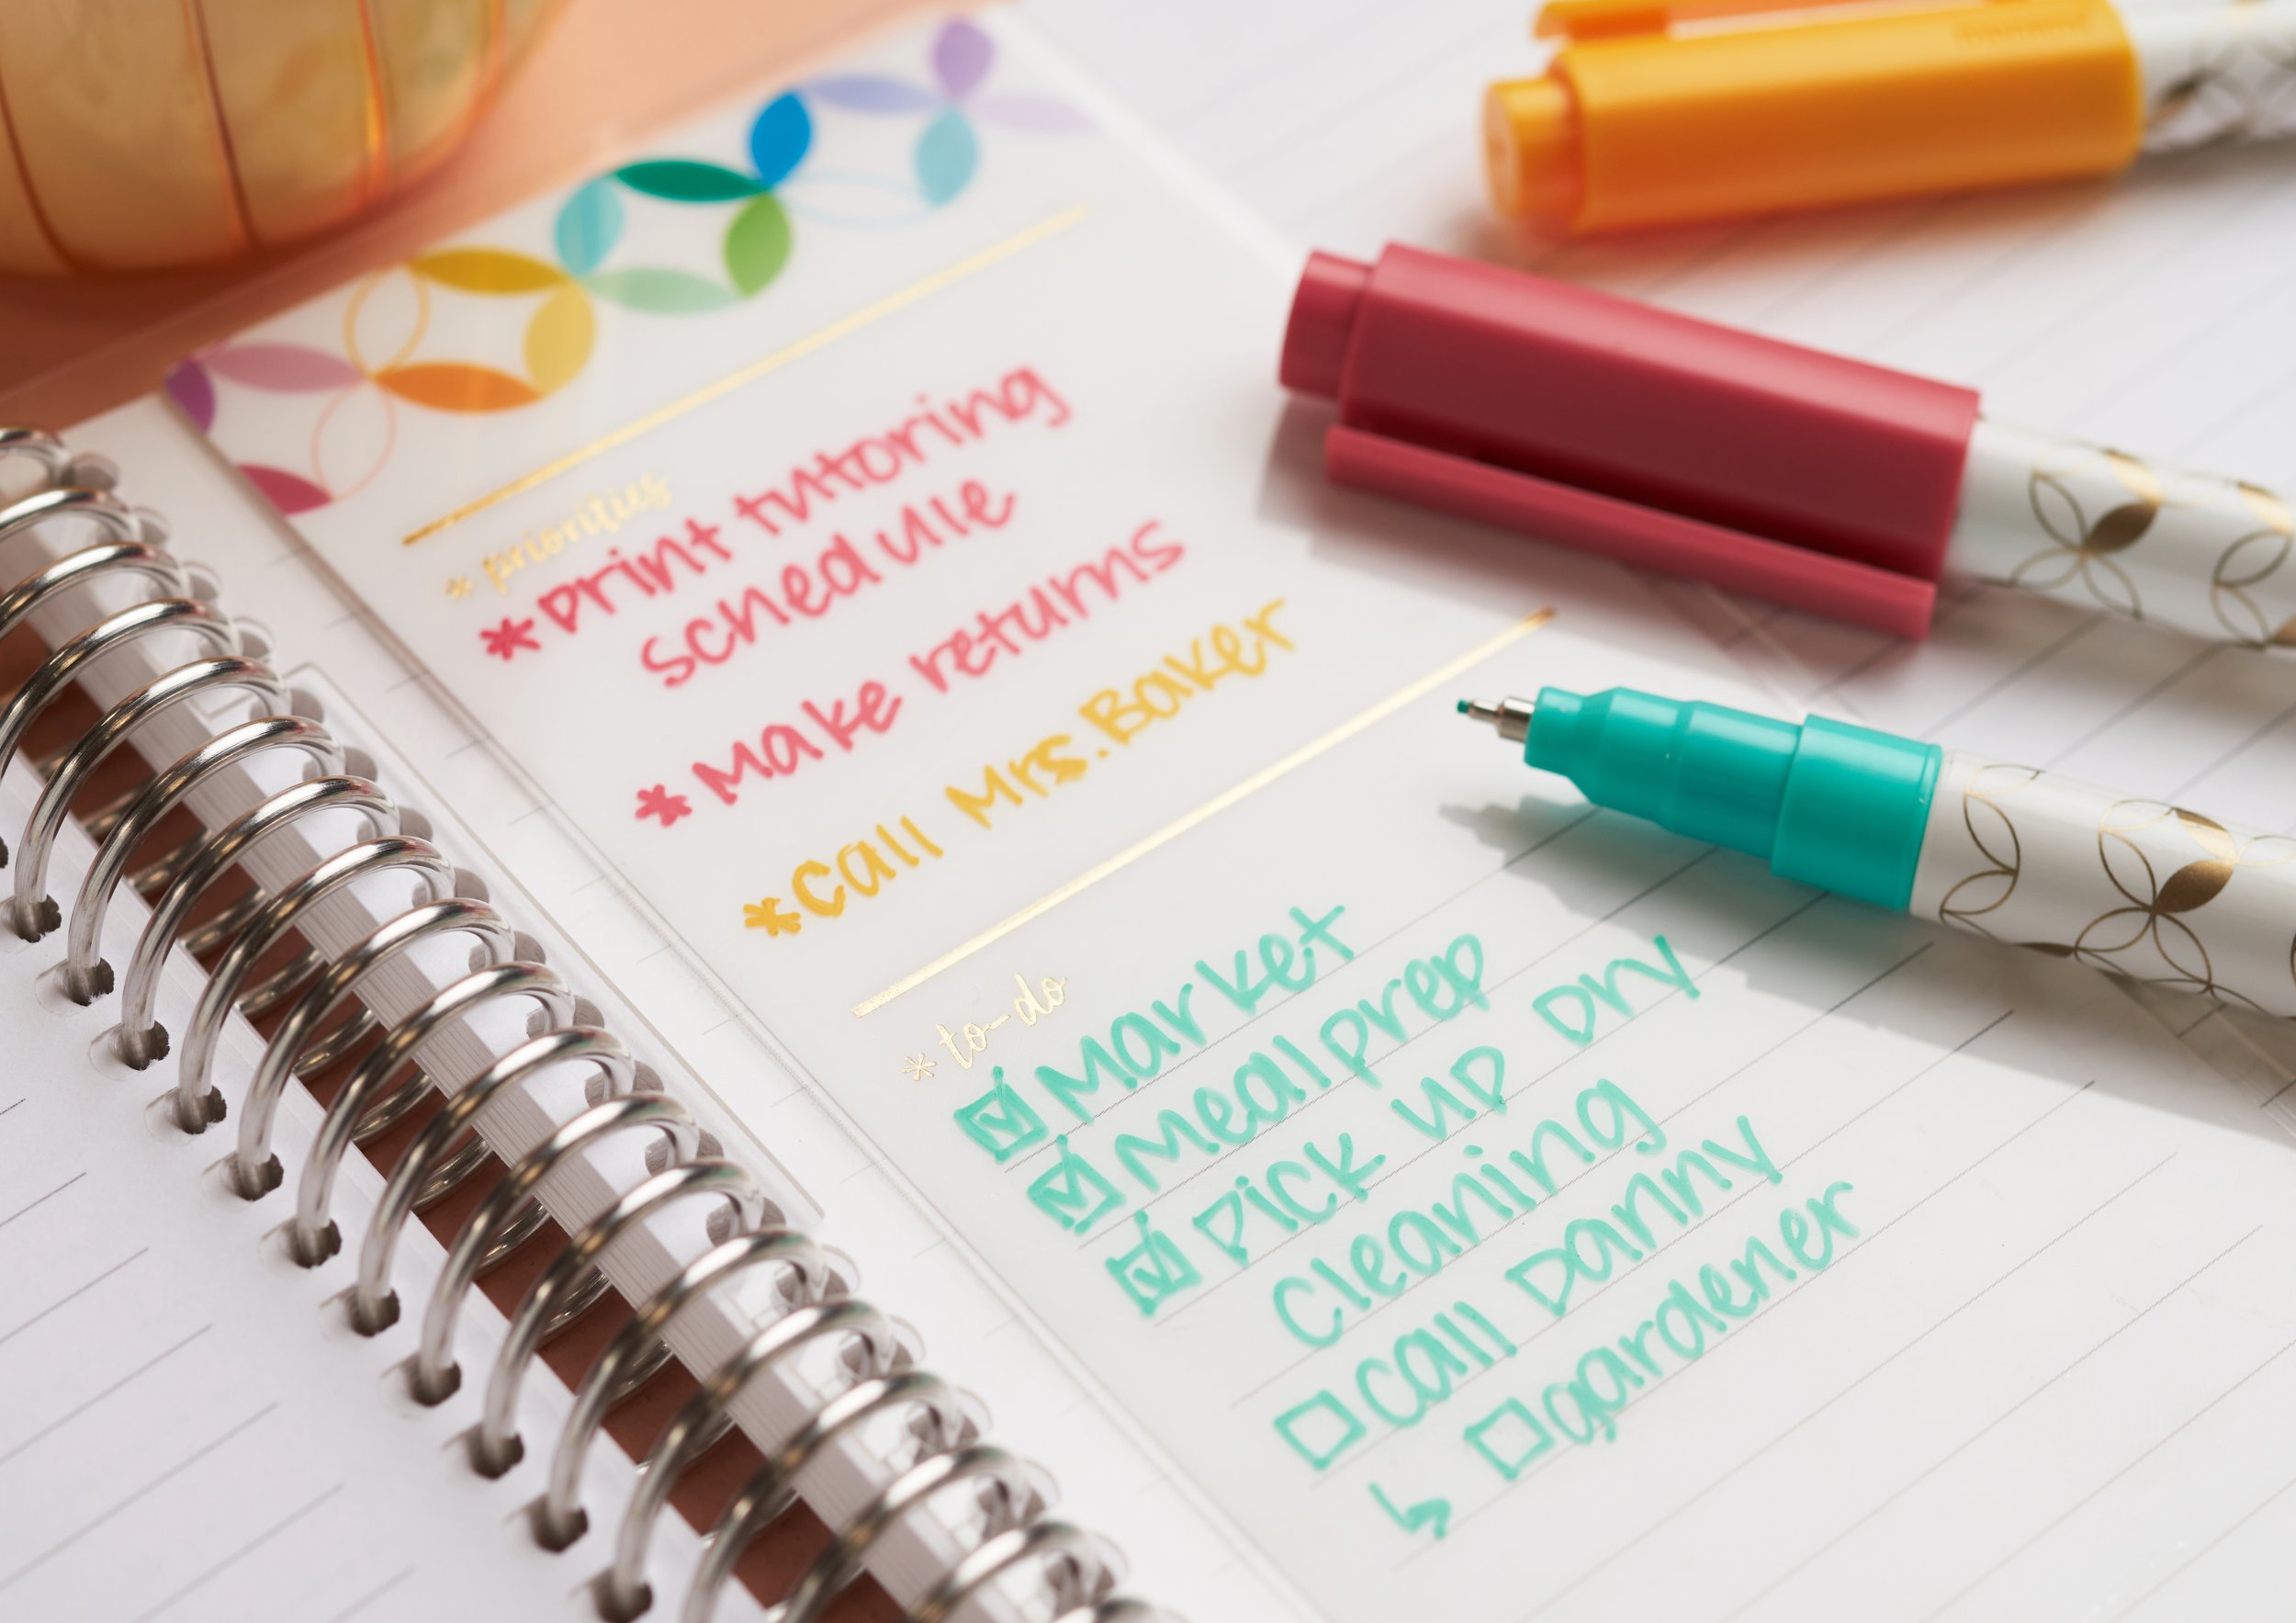 * priorities
* Print tutoring
schedule
* Make returns
* Call Mrs. Baker
* to-do
☑ Market
☑ Meal prep
☑ Pick up Dry
Cleaning
☐ Call Danny
↳ ☐ gardener